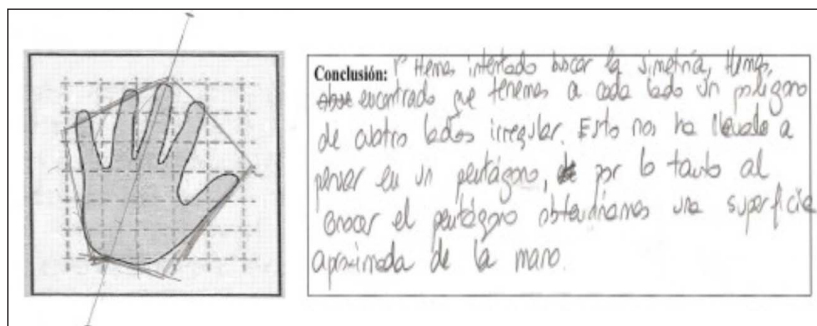 Conclusión: 1º Hemos intentado buscar la simetría, Hemos
encontrado que tenemos a cada lado un polígono
de cuatro lados irregular. Esto nos ha llevado a
pensar en un pentágono, por lo tanto al
conocer el pentágono obtendríamos una superficie
aproximada de la mano.